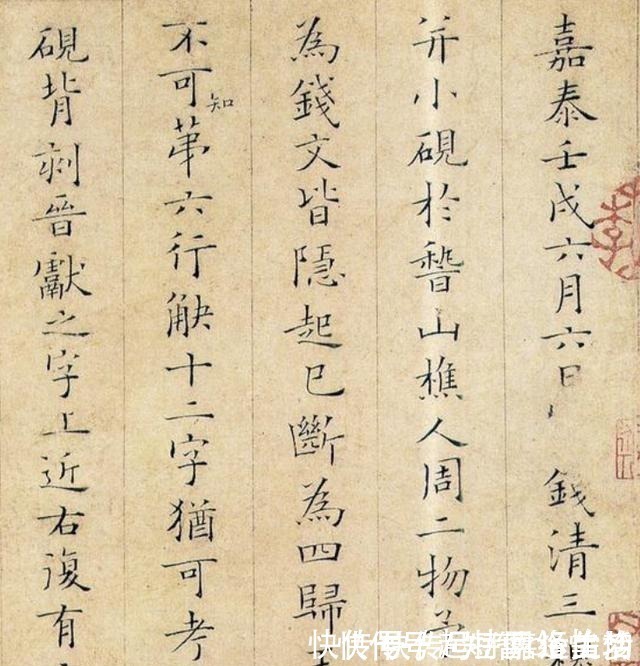 嘉泰壬戌六月六日 錢清三
并小硯於稽山樵人周二物
為錢文皆隱起已斷為四歸
不可知第六行缺十二字猶可考
硯背刻晉獻之字上近右復有